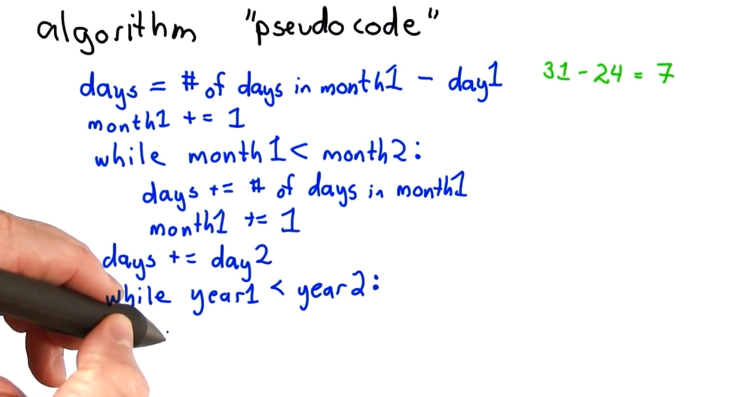 algorithm "pseudocode"
days = # of days in month1 - day1 31 - 24 = 7
month1 += 1
while month1 < month2:
days += # of days in month1
month1 += 1
days += day2
while year1 < year2: